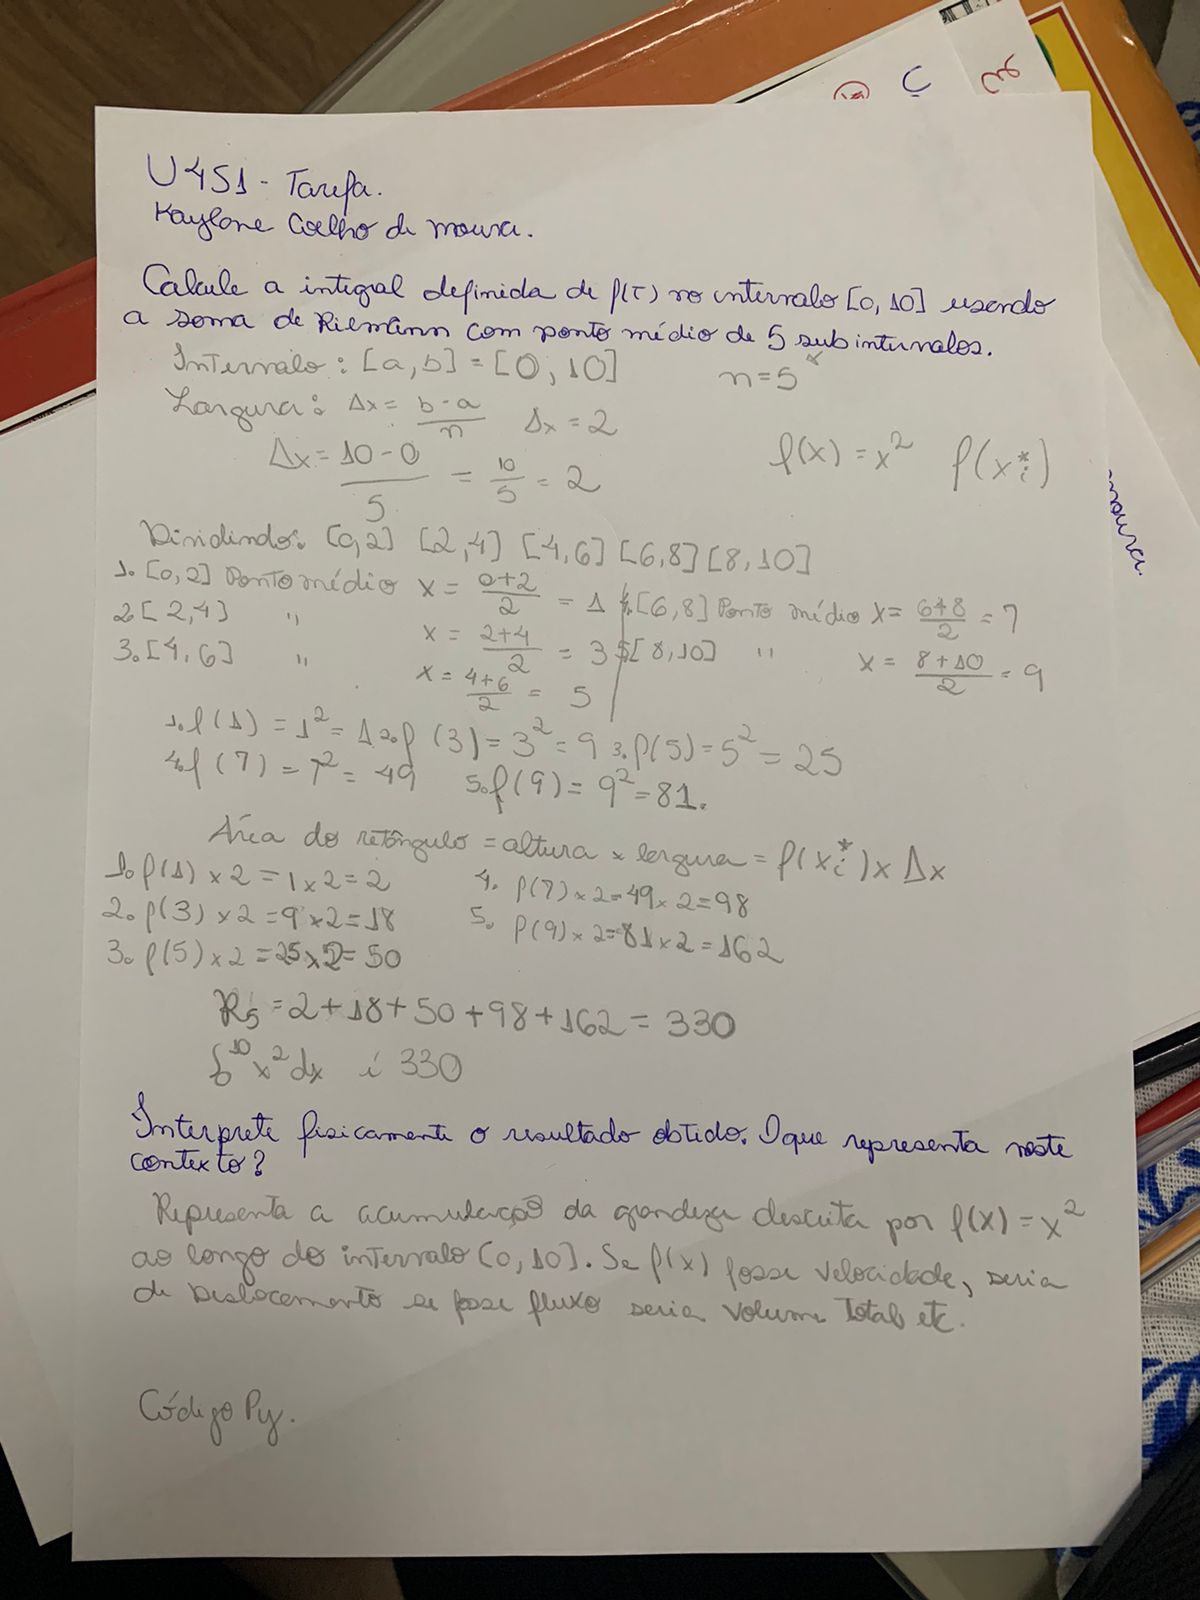 U4S1 - Tarefa.
Kaylane Coelho de moura.
Calcule a integral definida de f(t) no intervalo [0, 10] usando
a soma de Riemann com ponto médio de 5 subintervalos.
Intervalo: [a, b] = [0, 10] n=5
Largura: Δx = b-a/n Δx = 2
Δx = 10-0/5 = 10/5 = 2 f(x) = x² f(xi*)
Dividindo: [0,2] [2,4] [4,6] [6,8] [8,10]
1. [0,2] Ponto médio x = 0+2/2 = 1 4. [6,8] Ponto médio x = 6+8/2 = 7
2 [2,4] " x = 2+4/2 = 3 5 [8,10] " x = 8+10/2 = 9
3. [4,6] " x = 4+6/2 = 5
1. f(1) = 1² = 1 2. f(3) = 3² = 9 3. f(5) = 5² = 25
4. f(7) = 7² = 49 5. f(9) = 9² = 81.
Área do retângulo = altura × largura = f(xi*) x Δx
1. f(1) × 2 = 1 × 2 = 2 4. f(7) × 2 = 49 × 2 = 98
2. f(3) × 2 = 9 × 2 = 18 5. f(9) × 2 = 81 × 2 = 162
3. f(5) × 2 = 25 × 2 = 50
R5 = 2 + 18 + 50 + 98 + 162 = 330
∫0^10 x² dx i 330
Interprete fisicamente o resultado obtido. O que representa neste
contexto?
Representa a acumulação da grandeza descrita por f(x) = x²
ao longo do intervalo [0, 10]. Se f(x) fosse velocidade, seria
de Deslocamento se fosse fluxo seria volume total etc.
Código Py.
moura.
Ç